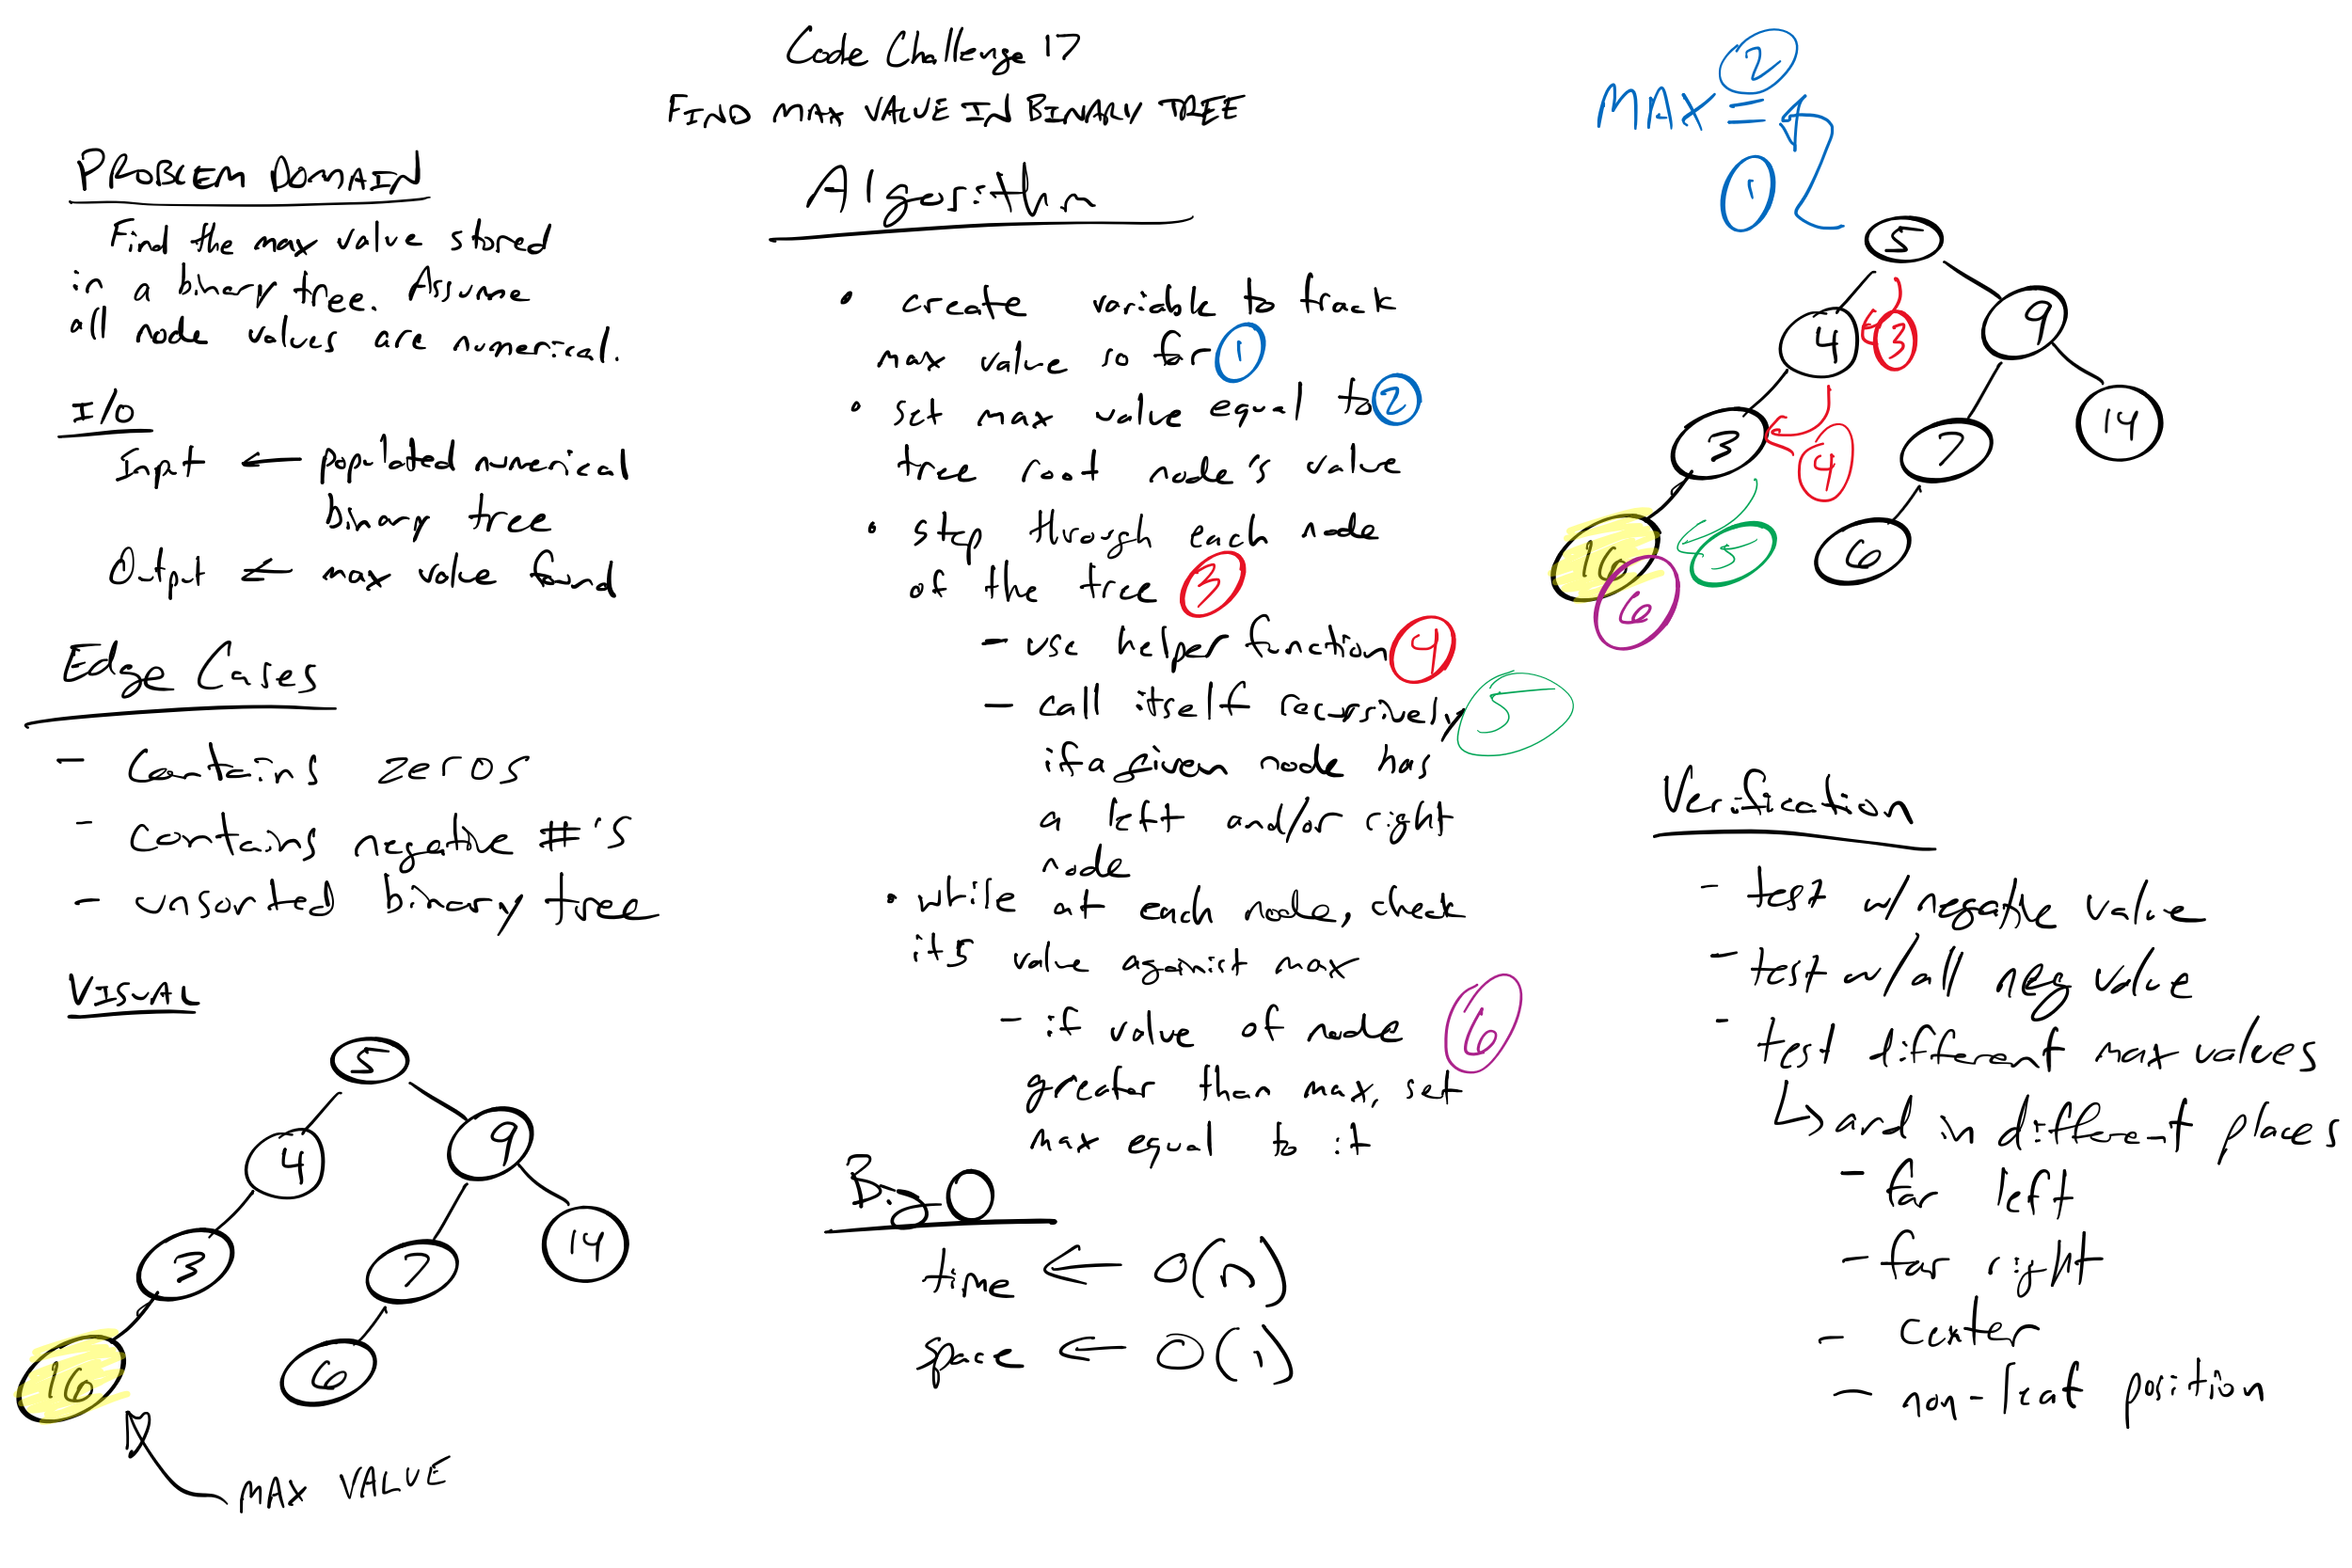 Code Challenge 17
FIND MAX VALUE IN BINARY TREE
PROBLEM DOMAIN
Find the max value stored
in a binary tree. Assume
all node values are numerical.
I/O
Input ← populated numerical
binary tree
Output ← max value found
Edge Cases
- Contains zeros
- contains negative #'s
- unsorted binary tree
VISUAL
5
4 9
3 7 14
16 6
MAX VALUE
Algorithm
• create variable to track
max value so far 1
• set max value equal to 2
tree root node's value
• step through each node
of the tree 3
- use helper function 4
- call itself recursively 5
if a given node has
a left and/or right
node
• while at each node, check
its value against max
- if value of node 6
greater than max, set
max equal to it
Big O
time ← O(n)
space ← O(1)
2
MAX =
1
5
4 3 9
3 4 7 14
16 5 6
6
Verification
- test w/ negative value
- test w/ all neg value
- test different max values
↳ and in different places
- far left
- far right
- center
- non-leaf position